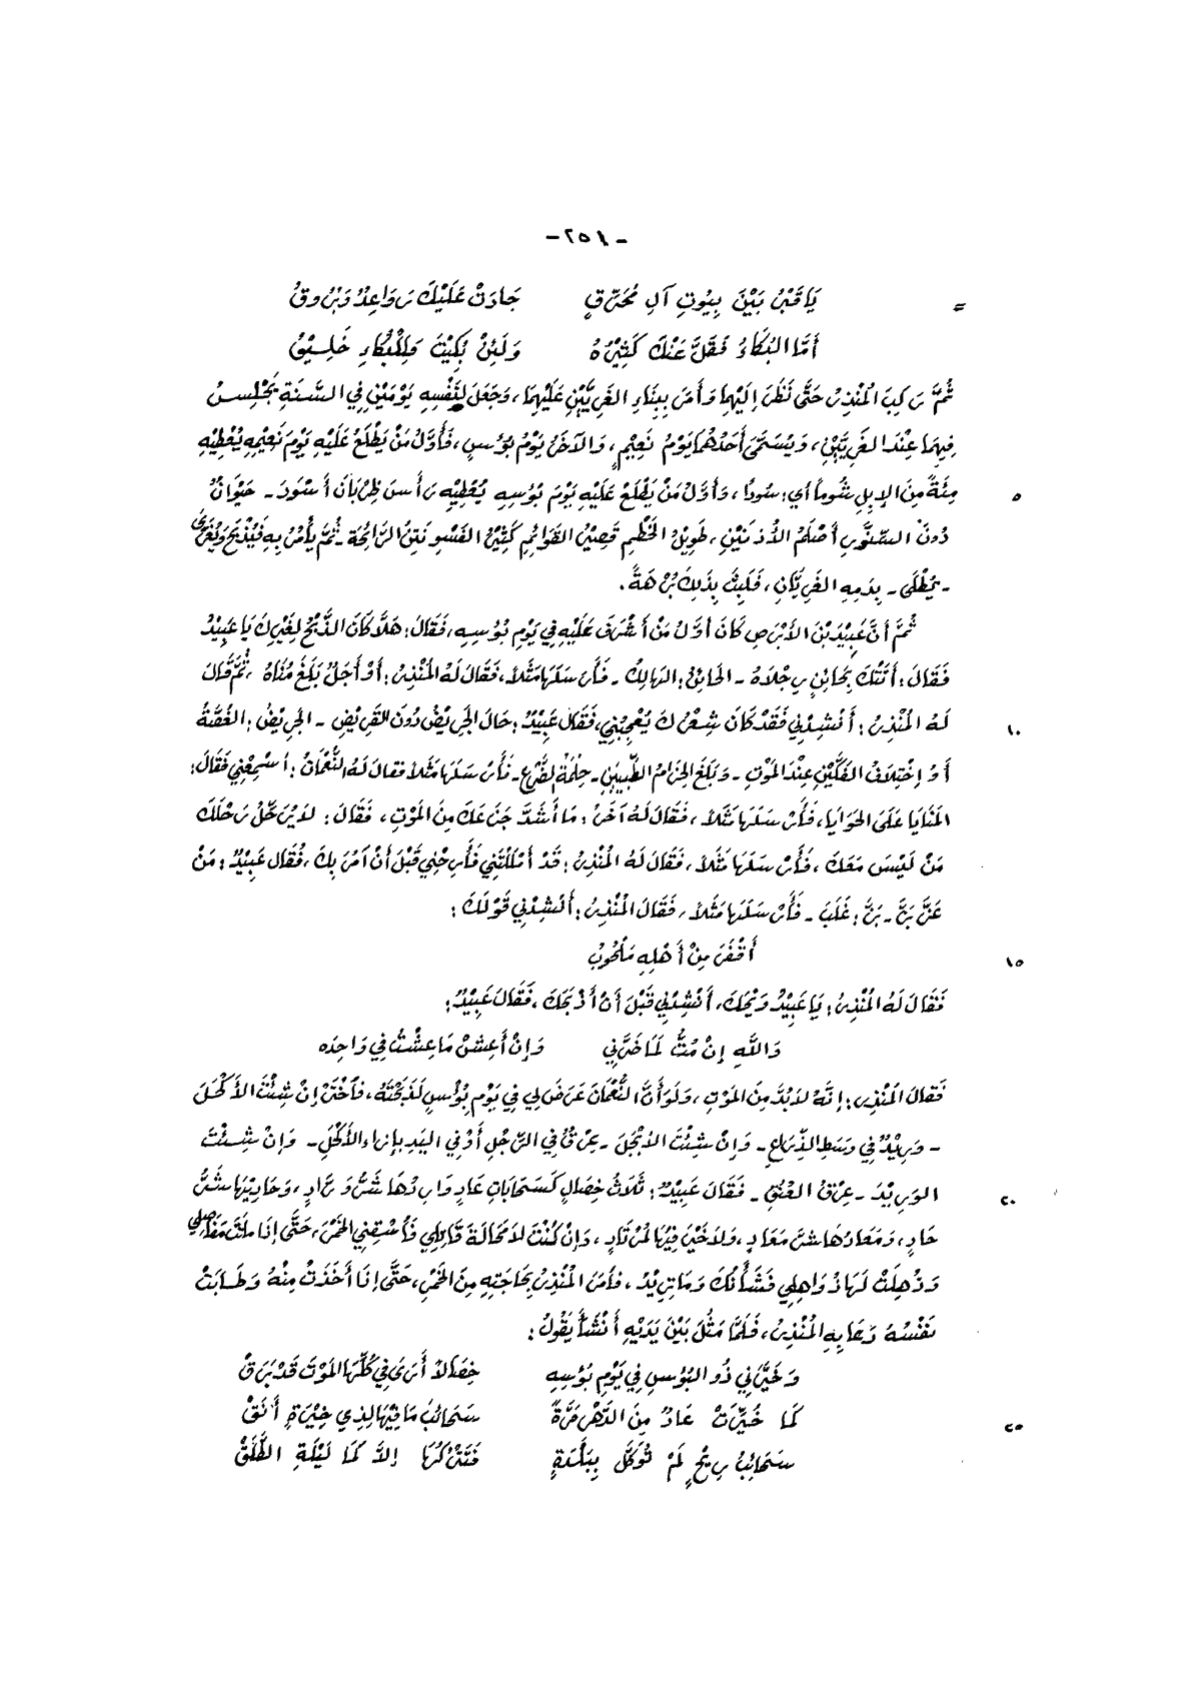 - ٢٥١ -
= يَا قَبْرُ بَيْنَ بُيُوتِ آلِ مُحَرِّقٍ جَادَتْ عَلَيْكَ رَوَاعِدٌ وَبُرُوقُ
أَمَّا البُكَاءُ فَقَلَّ عَنْكَ كَثِيْرُهُ وَلَئِنْ بُكِيْتَ وَلِلْبُكَاءِ خَلِيْقُ
ثُمَّ رَكِبَ المُنْذِرُ حَتَّى نَظَرَ إِلَيْهِمَا وَأَمَرَ بِبِنَاءِ الغَرِيَّيْنِ عَلَيْهِمَا، وَجَعَلَ لِنَفْسِهِ يَوْمَيْنِ فِي السَّنَةِ يَجْلِسُ
فِيهِمَا عِنْدَ الغَرِيَّيْنِ، وَيُسَمَّى أَحَدُهُمَا يَوْمُ نَعِيْمٍ، وَالآخَرُ يَوْمُ بُؤْسٍ، فَأَوَّلُ مَنْ يَطْلَعُ عَلَيْهِ يَوْمَ نَعِيْمِهِ يُعْطِيْهِ
٥ مِئَةً مِنَ الإِبِلِ شُوماً أي: سُودًا، وَأَوَّلُ مَنْ يَطْلَعُ عَلَيْهِ يَوْمَ بُؤْسِهِ يُعْطِيْهِ رَأْسَ ظَرِبَانَ أَسْوَدَ - حَيَوَانٌ
دُونَ السِّنَّوْرِ أَصْلَمُ الأُذُنَيْنِ، طَوِيْلُ الخَطْمِ قَصِيْرُ القَوَائِمِ كَثِيْرُ الفَسْوِ نَتِنُ الرَّائِحَةِ - ثُمَّ يَأْمُرُ بِهِ فَيُذْبَحُ وَيُغَرَّى
- يُطْلَى - بِدَمِهِ الغَرِيَّانِ، فَلَبِثَ بِذَلِكَ بُرْهَةً.
ثُمَّ أَنَّ عَبِيْدَ بْنَ الأَبْرَصِ كَانَ أَوَّلُ مَنْ أَشْرَفَ عَلَيْهِ فِي يَوْمِ بُؤْسِهِ، فَقَالَ: هَلَّا كَانَ الذَّبْحُ لِغَيْرِكَ يَا عَبِيْدُ
فَقَالَ: أَتَتْكَ بِحَائِنٍ رِجْلَاهُ - الحَائِنُ: الهَالِكُ - فَأَرْسَلَهَا مَثَلاً، فَقَالَ لَهُ المُنْذِرُ: أَوْ أَجَلٌ بَلَغَ مُنَاهُ، ثُمَّ قَالَ
١٠ لَهُ المُنْذِرُ: أَنْشِدْنِي فَقَدْ كَانَ شِعْرُكَ يُعْجِبُنِي، فَقَالَ عَبِيْدٌ: حَالَ الجَرِيْضُ دُونَ القَرِيْضِ - الجَرِيْضُ: الغُصَّةُ
أَوْ اِخْتِلَافُ الفَكَّيْنِ عِنْدَ المَوْتِ - وَبَلَغَ الحِزَامُ الطُّبِيَيْنِ - حِلْمَةُ الضَّرْعِ - فَأَرْسَلَهَا مَثَلاً فَقَالَ لَهُ النُّعْمَانُ: أَسْمِعْنِي فَقَالَ:
المَنَايَا عَلَى الحَوَايَا، فَأَرْسَلَهَا مَثَلاً، فَقَالَ لَهُ آخَرُ: مَا أَشَدَّ جَزَعَكَ مِنَ المَوْتِ، فَقَالَ: لَا يَرْحَلُ رَحْلَكَ
مَنْ لَيْسَ مَعَكَ، فَأَرْسَلَهَا مَثَلاً، فَقَالَ لَهُ المُنْذِرُ: قَدْ أَمْلَلْتَنِي فَأَرِحْنِي قَبْلَ أَنْ آمُرَ بِكَ، فَقَالَ عَبِيْدٌ: مَنْ
عَزَّ بَزَّ - بَزَّ: غَلَبَ - فَأَرْسَلَهَا مَثَلاً، فَقَالَ المُنْذِرُ: أَنْشِدْنِي قَوْلَكَ:
١٥ أَقْفَرَ مِنْ أَهْلِهِ مَلْحُوبُ
فَقَالَ لَهُ المُنْذِرُ: يَا عَبِيْدُ وَيْحَكَ، أَنْشِدْنِي قَبْلَ أَنْ أَذْبَحَكَ، فَقَالَ عَبِيْدٌ:
وَاللَّهِ إِنْ مُتُّ لَمَا ضَرَّنِي وَإِنْ أَعِشْ مَا عِشْتُ فِي وَاحِدَه
فَقَالَ المُنْذِرُ: إِنَّهُ لَابُدَّ مِنَ المَوْتِ، وَلَو أَنَّ النُّعْمَانَ عَرَضَ لِي فِي يَوْمِ بُؤْسٍ لَذَبَحْتُهُ، فَاخْتَرْ إِنْ شِئْتَ الأَكْحَلَ
- وَرِيْدٌ فِي وَسَطِ الذِّرَاعِ - وَإِنْ شِئْتَ الأَبْجَلَ - عِرْقٌ فِي الرِّجْلِ أَوْ فِي اليَدِ بِإِزَاءِ الأَكْحَلِ - وَإِنْ شِئْتَ
٢٠ الوَرِيْدَ - عِرْقُ العُنُقِ - فَقَالَ عَبِيْدٌ: ثَلَاثُ خِصَالٍ كَسَحَابَاتِ عَادٍ وَارِدُهَا شَرُّ وَرَّادٍ، وَحَادِيْهَا شَرُّ
حَادٍ، وَمَعَادُهَا شَرُّ مَعَادٍ، وَلَا خَيْرَ فِيْهَا لِمُرْتَادٍ، وَإِنْ كُنْتَ لَا مَحَالَةَ قَاتِلِي فَأَسْقِنِي الخَمْرَ، حَتَّى إِذَا مَاتَتْ مَفَاصِلِي
وَذَهِلَتْ لَهَا ذَوَاهِلِي فَشَأْنُكَ وَمَا تِرِيْدُ، فَأَمَرَ المُنْذِرُ بِحَاجَتِهِ مِنَ الخَمْرِ، حَتَّى إِذَا أَخَذَتْ مِنْهُ وَطَابَتْ
نَفْسُهُ دَعَا بِهِ المُنْذِرُ، فَلَمَّا مَثُلَ بَيْنَ يَدَيْهِ أَنْشَأَ يَقُولُ:
وَخَيَّرَنِي ذُو البُؤْسِ فِي يَوْمِ بُؤْسِهِ خِصَالاً أَرَى فِي كُلِّهَا المَوْتَ قَدْ بَرَقْ
٢٥ كَمَا خُيِّرَتْ عَادٌ مِنَ الدَّهْرِ مَرَّةً سَحَائِبَ مَا فِيْهَا لِذِي خِيْرَةٍ أَنَقْ
سَحَائِبُ رِيْحٍ لَمْ تُوَكَّلْ بِبَلْدَةٍ فَتَتْرُكَهَا إِلَّا كَمَا لَيْلَةِ الطَّلَقْ